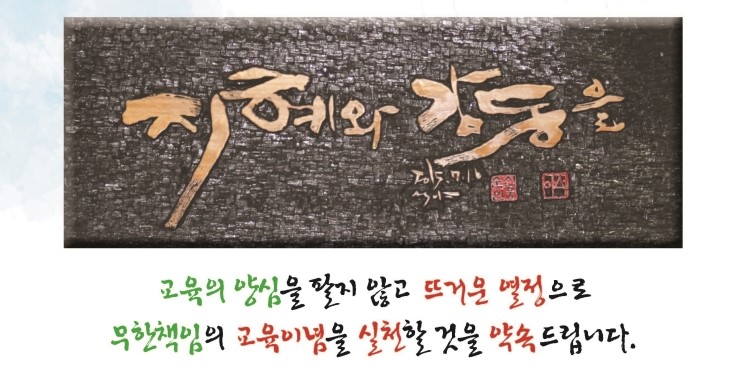 지혜와 감동을
교육의 양심을 팔지 않고 뜨거운 열정으로
무한책임의 교육이념을 실천할 것을 약속드립니다.